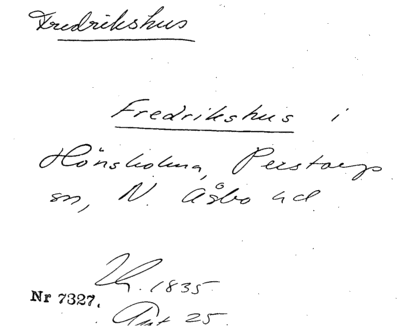 Fredrikshus
Fredrikshus i
Hönsholma, Perstorps
sn, N. Åsbo hd
1835
Nr 7327.
25.